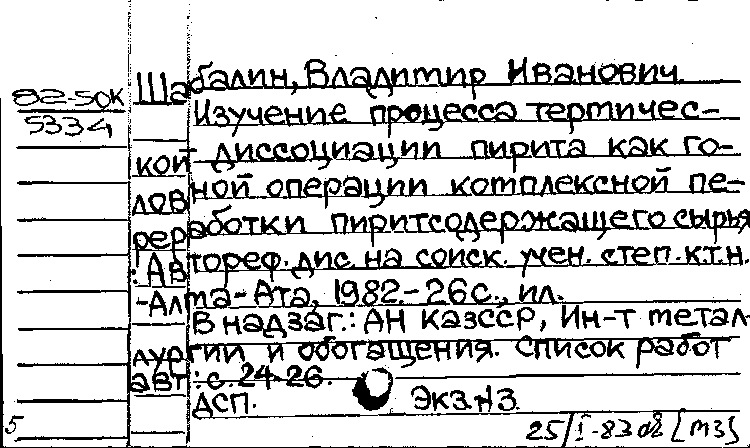 82-5ОК
5334
Шабалин, Владимир Иванович.
Изучение процесса термичес-
кой диссоциации пирита как го-
ловной операции комплексной пе-
реработки пиритсодержащего сырья
: Автореф. дис. на соиск. учен. степ. к.т.н.
-Алма-Ата, 1982.-26с., ил.
В надзаг.: АН КазССР, Ин-т метал-
лургии и обогащения. Список работ
авт.: с. 24-26.
ДСП. Экз.№3.
5
25/I-83 [МЗ]